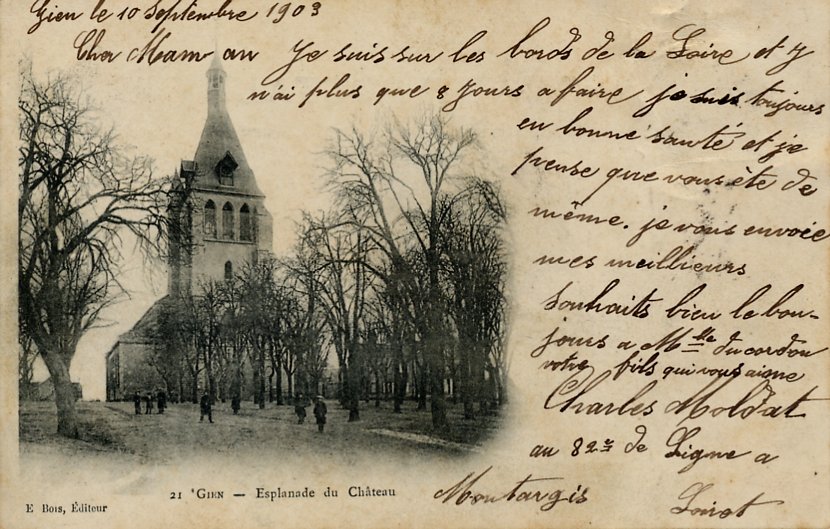 Gien le 10 Septembre 1903
Cher Maman Je suis sur les bords de la Loire et J
n'ai plus que 8 Jours a faire je suis toujours
en bonne santé et je
pense que vous ète de
même. je vous envoie
mes meillieurs
souhaits bien le bon-
jours a Mlle ducordon
votre fils qui vous aigne
Charles Moldat
au 82e de Ligne a
Montargis Loiret
21 GIEN — Esplanade du Château
E Bois, Éditeur